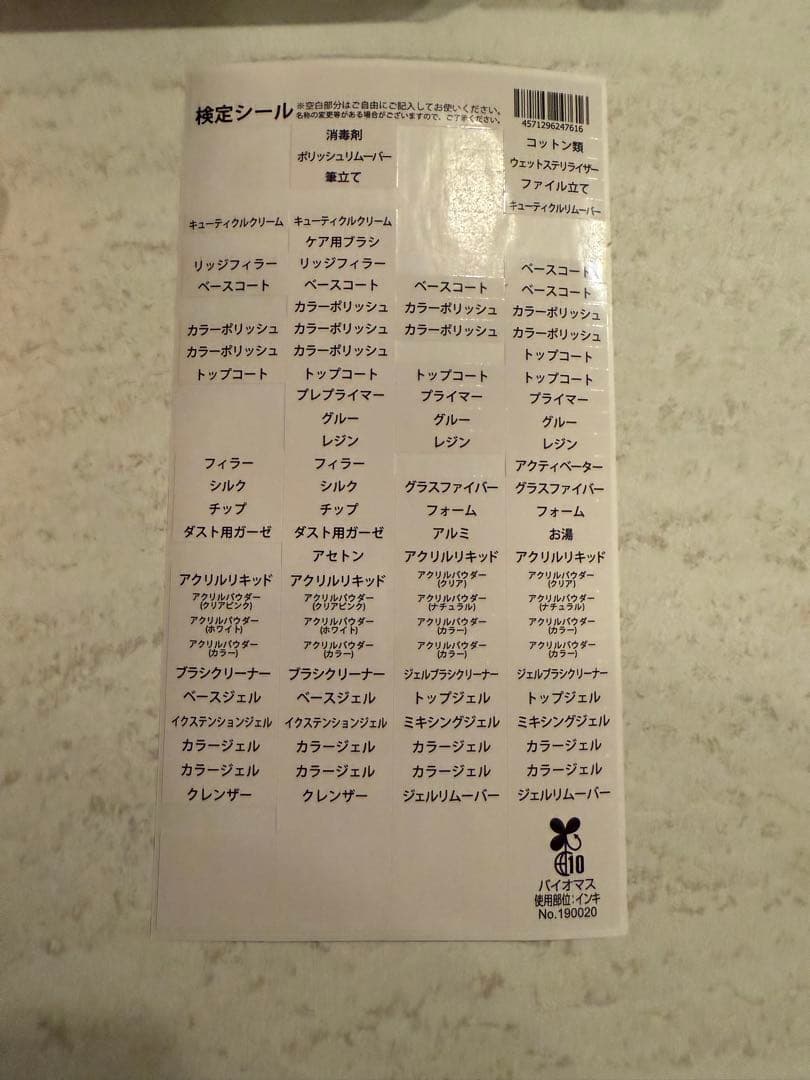 検定シール ※空白部分はご自由にご記入してお使いください。
名称の変更等がある場合がございますので、ご了承ください。
4571296247616
消毒剤 コットン類
ポリッシュリムーバー ウェットステリライザー
筆立て ファイル立て
キューティクルリムーバー
キューティクルクリーム キューティクルクリーム
ケア用ブラシ
リッジフィラー リッジフィラー ベースコート
ベースコート ベースコート ベースコート ベースコート
カラーポリッシュ カラーポリッシュ カラーポリッシュ
カラーポリッシュ カラーポリッシュ カラーポリッシュ カラーポリッシュ
カラーポリッシュ カラーポリッシュ トップコート
トップコート トップコート トップコート トップコート
プレプライマー プライマー プライマー
グルー グルー グルー
レジン レジン レジン
フィラー フィラー アクティベーター
シルク シルク グラスファイバー グラスファイバー
チップ チップ フォーム フォーム
ダスト用ガーゼ ダスト用ガーゼ アルミ お湯
アセトン アクリルリキッド アクリルリキッド
アクリルリキッド アクリルリキッド アクリルパウダー(クリア) アクリルパウダー(クリア)
アクリルパウダー(クリアピンク) アクリルパウダー(クリアピンク) アクリルパウダー(ナチュラル) アクリルパウダー(ナチュラル)
アクリルパウダー(ホワイト) アクリルパウダー(ホワイト) アクリルパウダー(カラー) アクリルパウダー(カラー)
アクリルパウダー(カラー) アクリルパウダー(カラー) アクリルパウダー(カラー) アクリルパウダー(カラー)
ブラシクリーナー ブラシクリーナー ジェルブラシクリーナー ジェルブラシクリーナー
ベースジェル ベースジェル トップジェル トップジェル
イクステンションジェル イクステンションジェル ミキシングジェル ミキシングジェル
カラージェル カラージェル カラージェル カラージェル
カラージェル カラージェル カラージェル カラージェル
クレンザー クレンザー ジェルリムーバー ジェルリムーバー
10
バイオマス
使用部位:インキ
No.190020